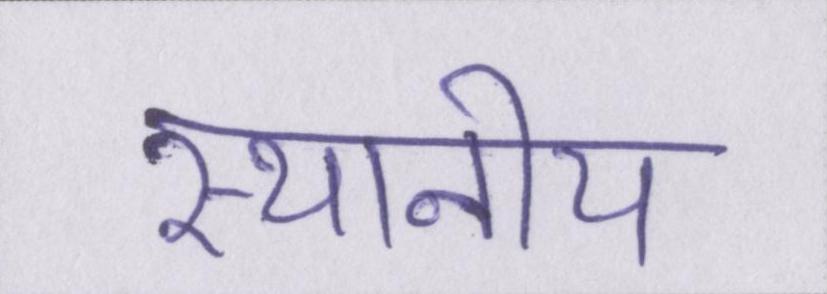 स्थानीय